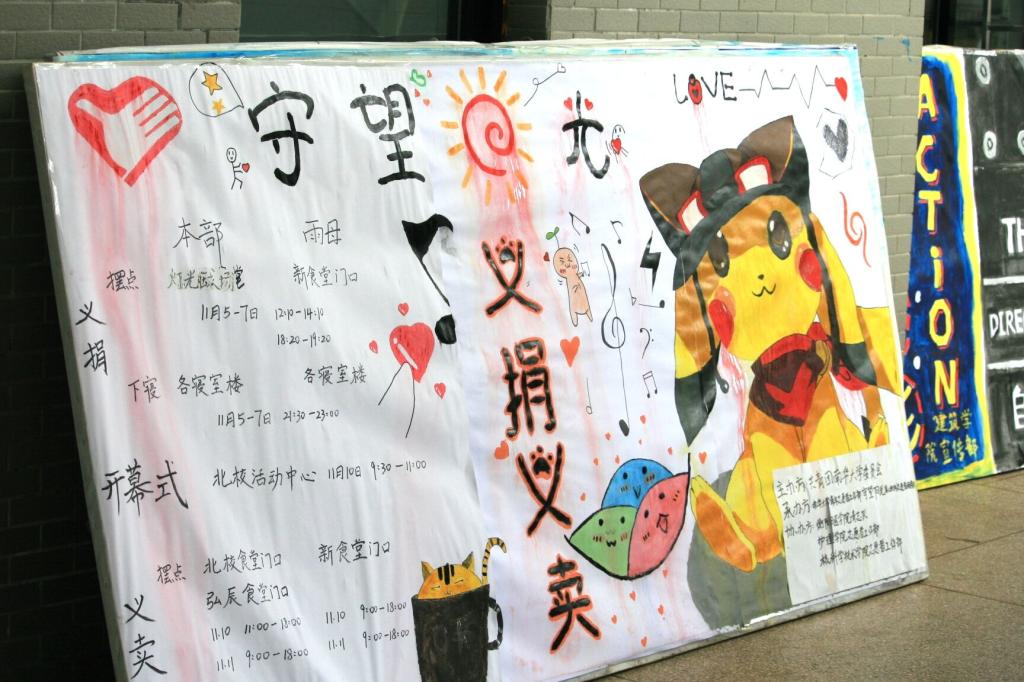 守望 北
LOVE
本部 雨母
义捐
摆点 灯光 新食堂门口
11月5-7日 12:10-14:10
18:20-19:20
下寝 各寝室楼 各寝室楼
11月5-7日 21:30-23:00
开幕式 北校活动中心 11月10日 9:30-11:00
义卖
摆点 北校食堂门口 新食堂门口
弘辰食堂门口
11.10 11:00-18:00 11.10 9:00-18:00
11.11 9:00-18:00 11.11 9:00-18:00
义捐义卖
主办方:共青团南华大学委员会
承办方:
协办方:
护理学院
ACTiON
建筑学
院宣传部
TH
DIRE
自